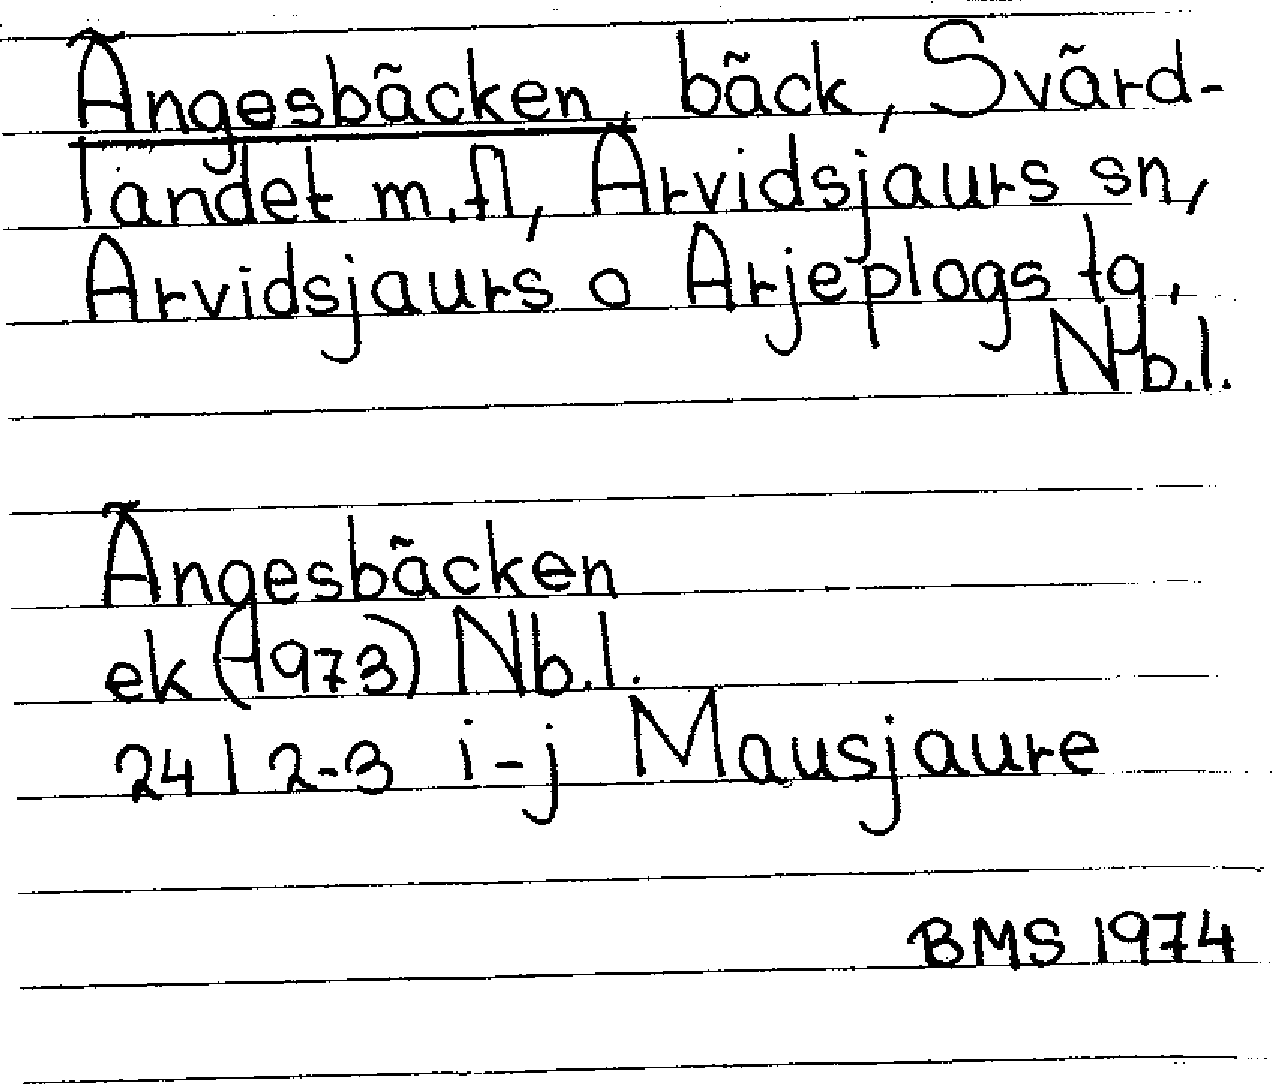 Ängesbäcken, bäck, Svärd-
landet m.fl, Arvidsjaurs sn,
Arvidsjaurs o Arjeplogs tg,
Nb.l.
Ängesbäcken
ek (1973) Nb.l.
24 I 2-3 i-j Mausjaure
BMS 1974